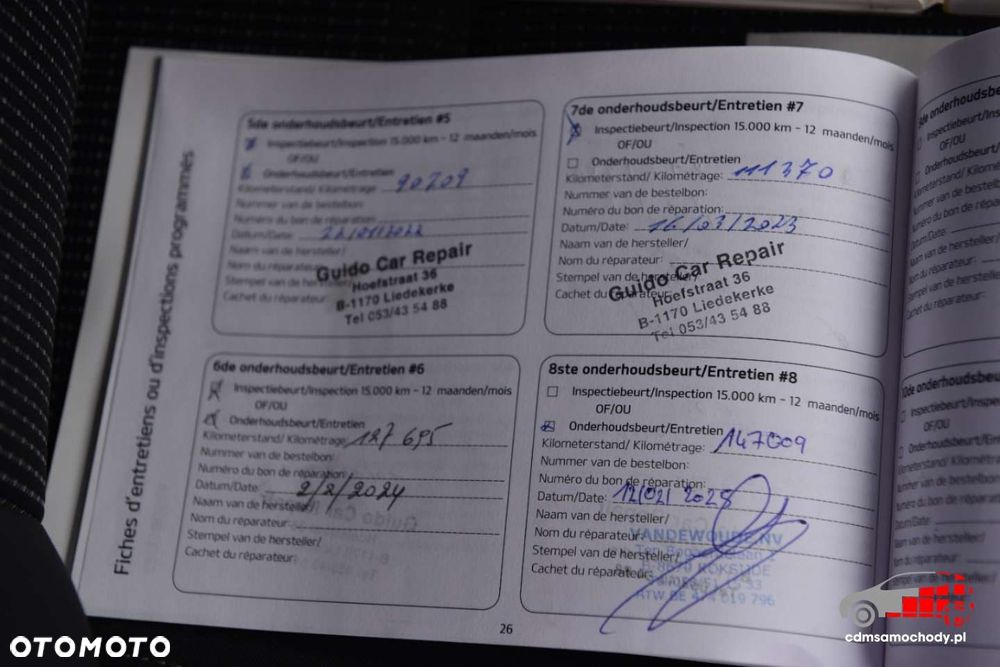 Fiches d'entretiens ou d'inspections programmés
5de onderhoudsbeurt/Entretien #5
Inspectiebeurt/Inspection 15.000 km - 12 maanden/mois
OF/OU
Onderhoudsbeurt/Entretien
Kilometerstand/ Kilométrage: 90209
Nummer van de bestelbon:
Numéro du bon de réparation:
Datum/Date:
Naam van de hersteller/
Nom du réparateur:
Stempel van de hersteller/
Cachet du réparateur:
Guido Car Repair
Hoefstraat 36
B-1170 Liedekerke
Tel 053/43 54 88
7de onderhoudsbeurt/Entretien #7
Inspectiebeurt/Inspection 15.000 km - 12 maanden/mois
OF/OU
Onderhoudsbeurt/Entretien
Kilometerstand/ Kilométrage: 111370
Nummer van de bestelbon:
Numéro du bon de réparation:
Datum/Date: 16/03/2023
Naam van de hersteller/
Nom du réparateur:
Stempel van de hersteller/
Cachet du réparateur:
Guido Car Repair
Hoefstraat 36
B-1170 Liedekerke
Tel 053/43 54 88
6de onderhoudsbeurt/Entretien #6
Inspectiebeurt/Inspection 15.000 km - 12 maanden/mois
OF/OU
Onderhoudsbeurt/Entretien
Kilometerstand/ Kilométrage: 127695
Nummer van de bestelbon:
Numéro du bon de réparation:
Datum/Date: 2/2/2024
Naam van de hersteller/
Nom du réparateur:
Stempel van de hersteller/
Cachet du réparateur:
8ste onderhoudsbeurt/Entretien #8
Inspectiebeurt/Inspection 15.000 km - 12 maanden/mois
OF/OU
Onderhoudsbeurt/Entretien
Kilometerstand/ Kilométrage: 147009
Nummer van de bestelbon:
Numéro du bon de réparation:
Datum/Date: 12/02/2025
Naam van de hersteller/
Nom du réparateur:
Stempel van de hersteller/
Cachet du réparateur:
VANDEWOUDE NV
26
OTOMOTO
cdmsamochody.pl